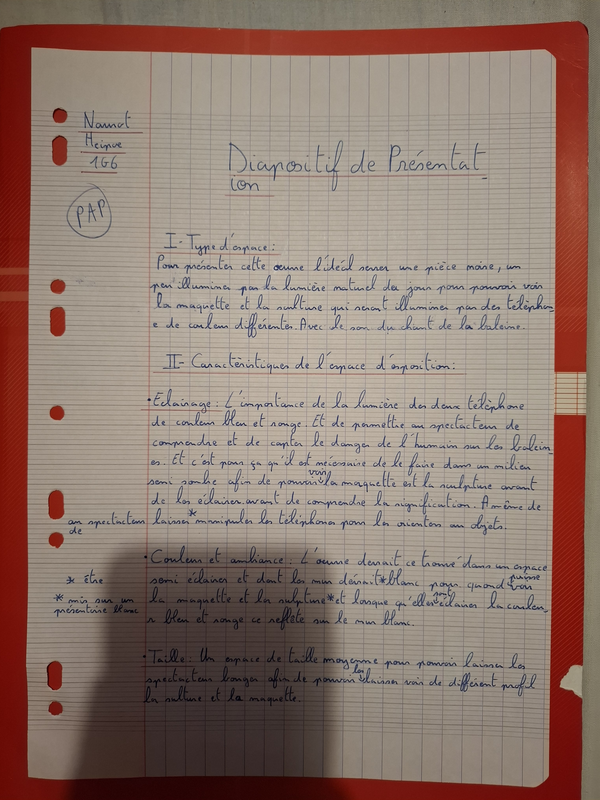 Namot
1G6
PAP
Diapositif de Présentat
ion
I- Type d'espace:
Pour présenter cette œuvre l'idéal serer une pièce noire, un
peu illuminer par la lumière naturel du jour pour pouvoir voir
la maquette et la sulture qui seront illuminer par des téléphon-
e de couleur différentes. Avec le son du chant de la baleine.
II- Caractéristiques de l'espace d'exposition:
• Eclairage: L'importance de la lumière des deux téléphone
de couleur bleu et rouge. Et de permettre au spectacteur de
comprendre et de capter le danger de l'humain sur les balein-
es. Et c'est pour ça qu'il est nécéssaire de le faire dans un milieu
semi sombre afin de pouvoir voir la marquette est la sculpture avant
de les éclairer avant de comprendre la signification. A même de
laisser* manipuler les téléphones pour les orienters au objets.
au spectacteur
de
• Couleur et ambiance: L'œuvre devrait ce trouvé dans un espace
semi éclairer et dont les mur dévrait* blanc pour quand puisse voir
* être
la maquette et la sulpture* et lorsque qu'elles sont éclairer la couleu-
* mis sur un
présentoire blanc
r bleu et rouge ce reflète sur le mur blanc.
• Taille: Un espace de taille moyenne pour pouvoir laisser les
spectacteur bouger afin de pouvoir les laisser voir de différent profil
la sulture et la maquette.